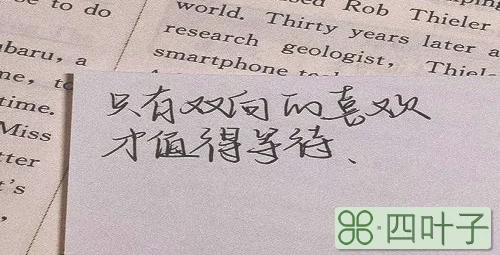 to do
Rob Thieler
world. Thirty years later a
research geologist,
smartphone
baru, a
me, to
time.
Miss
tter
t's
只有双向的喜欢
才值得等待、
四叶子